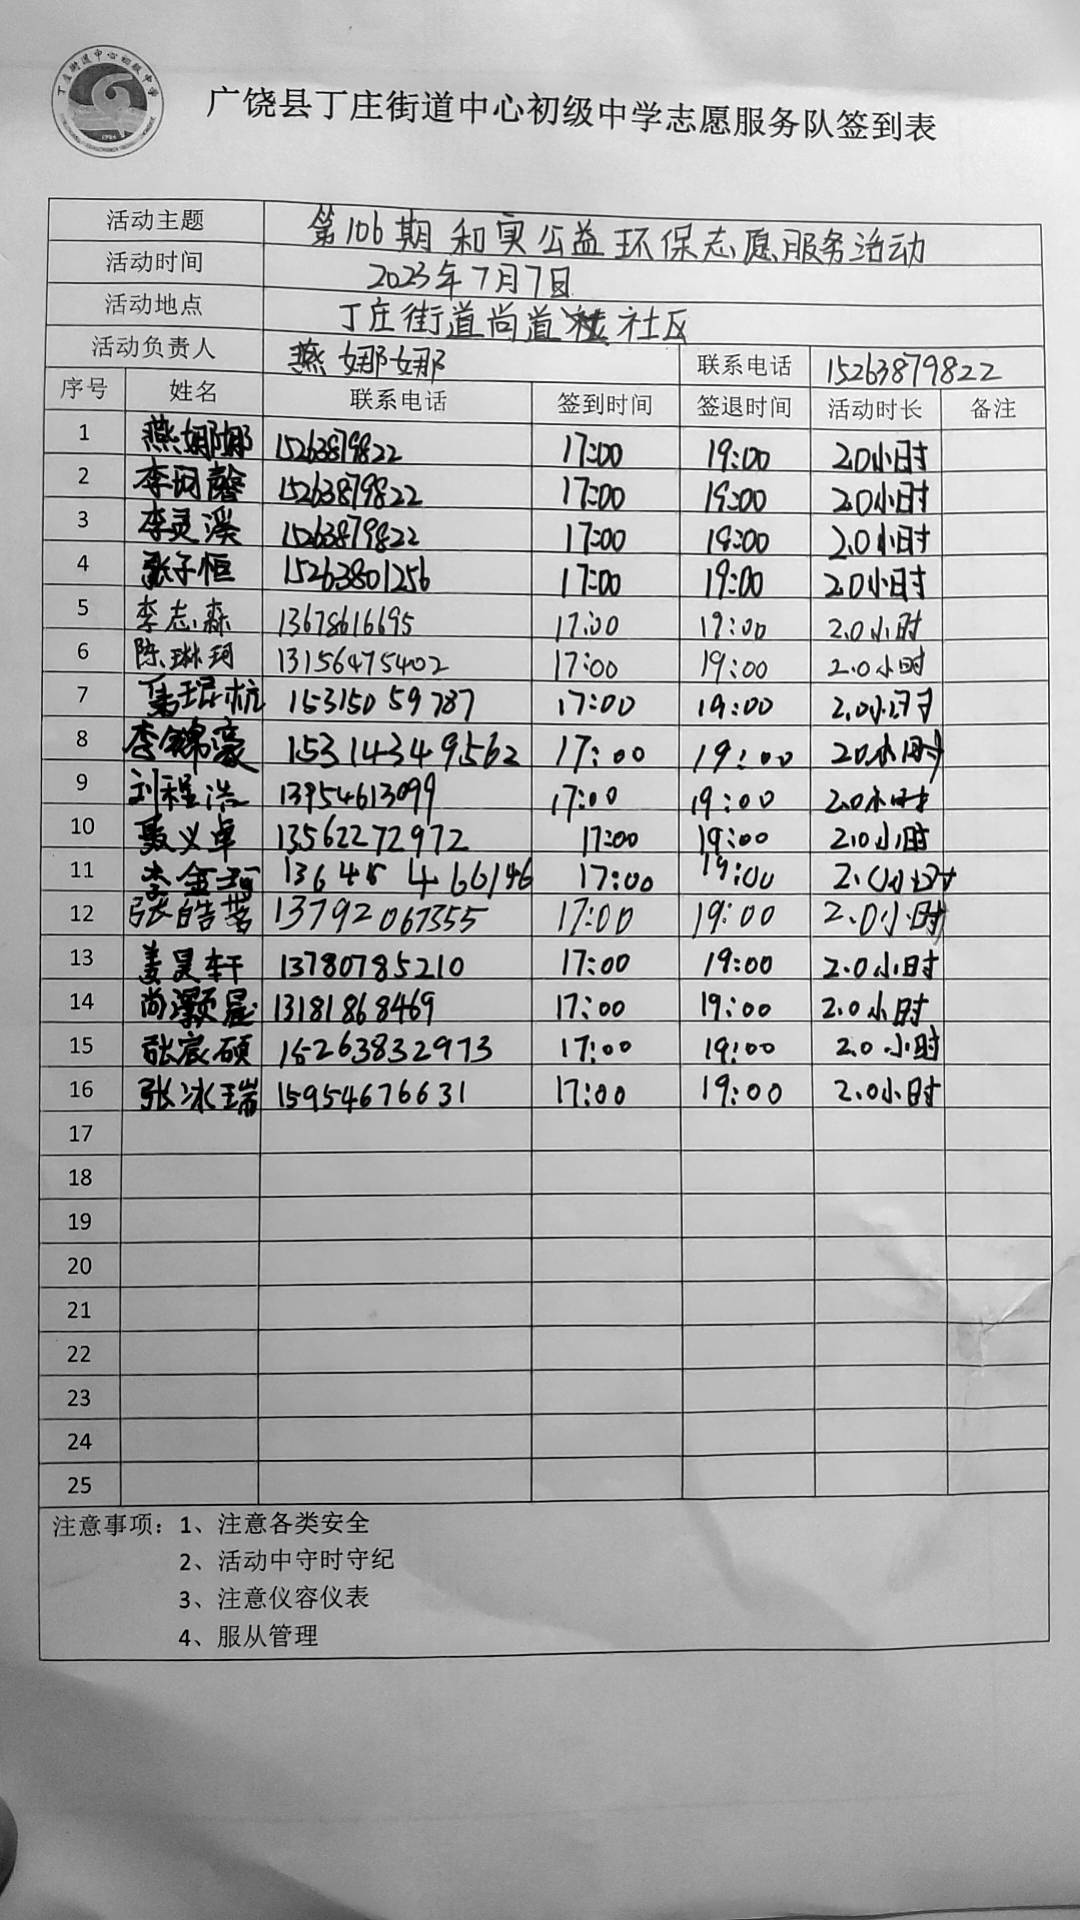 丁庄街道中心初级中学
广饶县丁庄街道中心初级中学志愿服务队签到表
活动主题 第106期和实公益环保志愿服务活动
活动时间 2023年7月7日
活动地点 丁庄街道尚道社区
活动负责人 燕娜娜 联系电话 15263879822
序号 姓名 联系电话 签到时间 签退时间 活动时长 备注
1 燕娜娜 15263879822 17:00 19:00 2.0小时
2 李玥馨 15263879822 17:00 19:00 2.0小时
3 李灵溪 15263879822 17:00 19:00 2.0小时
4 张子恒 15263801256 17:00 19:00 2.0小时
5 李志森 13678616695 17:00 19:00 2.0小时
6 陈琳珂 13156475402 17:00 19:00 2.0小时
7 15315059787 17:00 19:00 2.0小时
8 李锦濠 15314349562 17:00 19:00 2.0小时
9 刘程浩 13954613099 17:00 19:00 2.0小时
10 聂义卓 13562272972 17:00 19:00 2.0小时
11 李金珂 17:00 19:00 2.0小时
12 张皓茗 13792067355 17:00 19:00 2.0小时
13 姜昊轩 13780785210 17:00 19:00 2.0小时
14 尚灏晨 13181868469 17:00 19:00 2.0小时
15 张宸硕 15263832973 17:00 19:00 2.0小时
16 张冰瑞 15954676631 17:00 19:00 2.0小时
17
18
19
20
21
22
23
24
25
注意事项：1、注意各类安全
2、活动中守时守纪
3、注意仪容仪表
4、服从管理